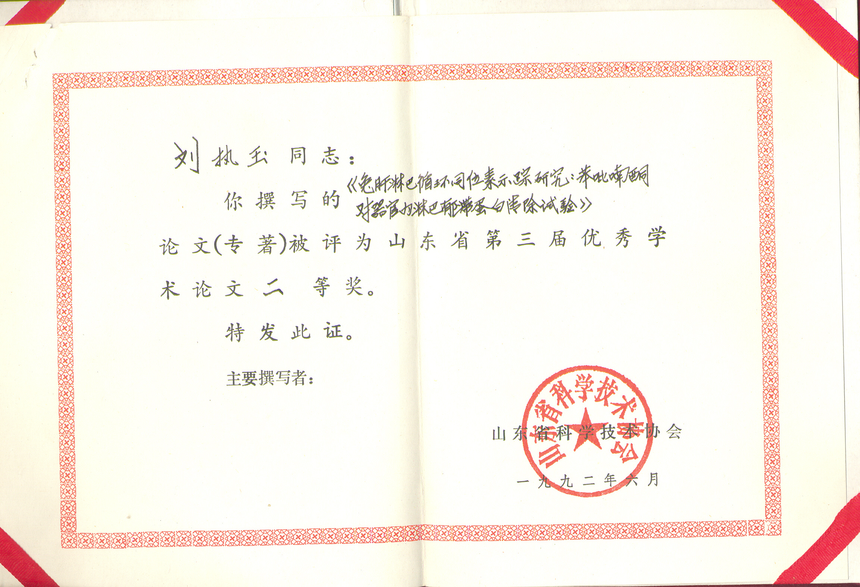 刘执玉同志：
你撰写的《兔肝淋巴循环同位素示踪研究：苯吡喃酮
对器官内淋巴郁滞蛋白清除试验》
论文(专著)被评为山东省第三届优秀学
术论文二等奖。
特发此证。
主要撰写者：
山东省科学技术协会
山东省科学技术协会
一九九二年六月